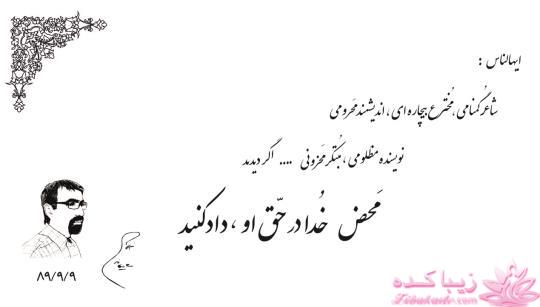 ایهالناس :
شاعر گمنامی، مُخترع بیچاره ای، اندیشند محرومی
نویسنده مظلومی، مُبتکر محزونی .... اگر دیدید
مَحض خُدا در حَّق او، دادکنید
۸۹/۹/۹
زیباکده
Zibakade.com